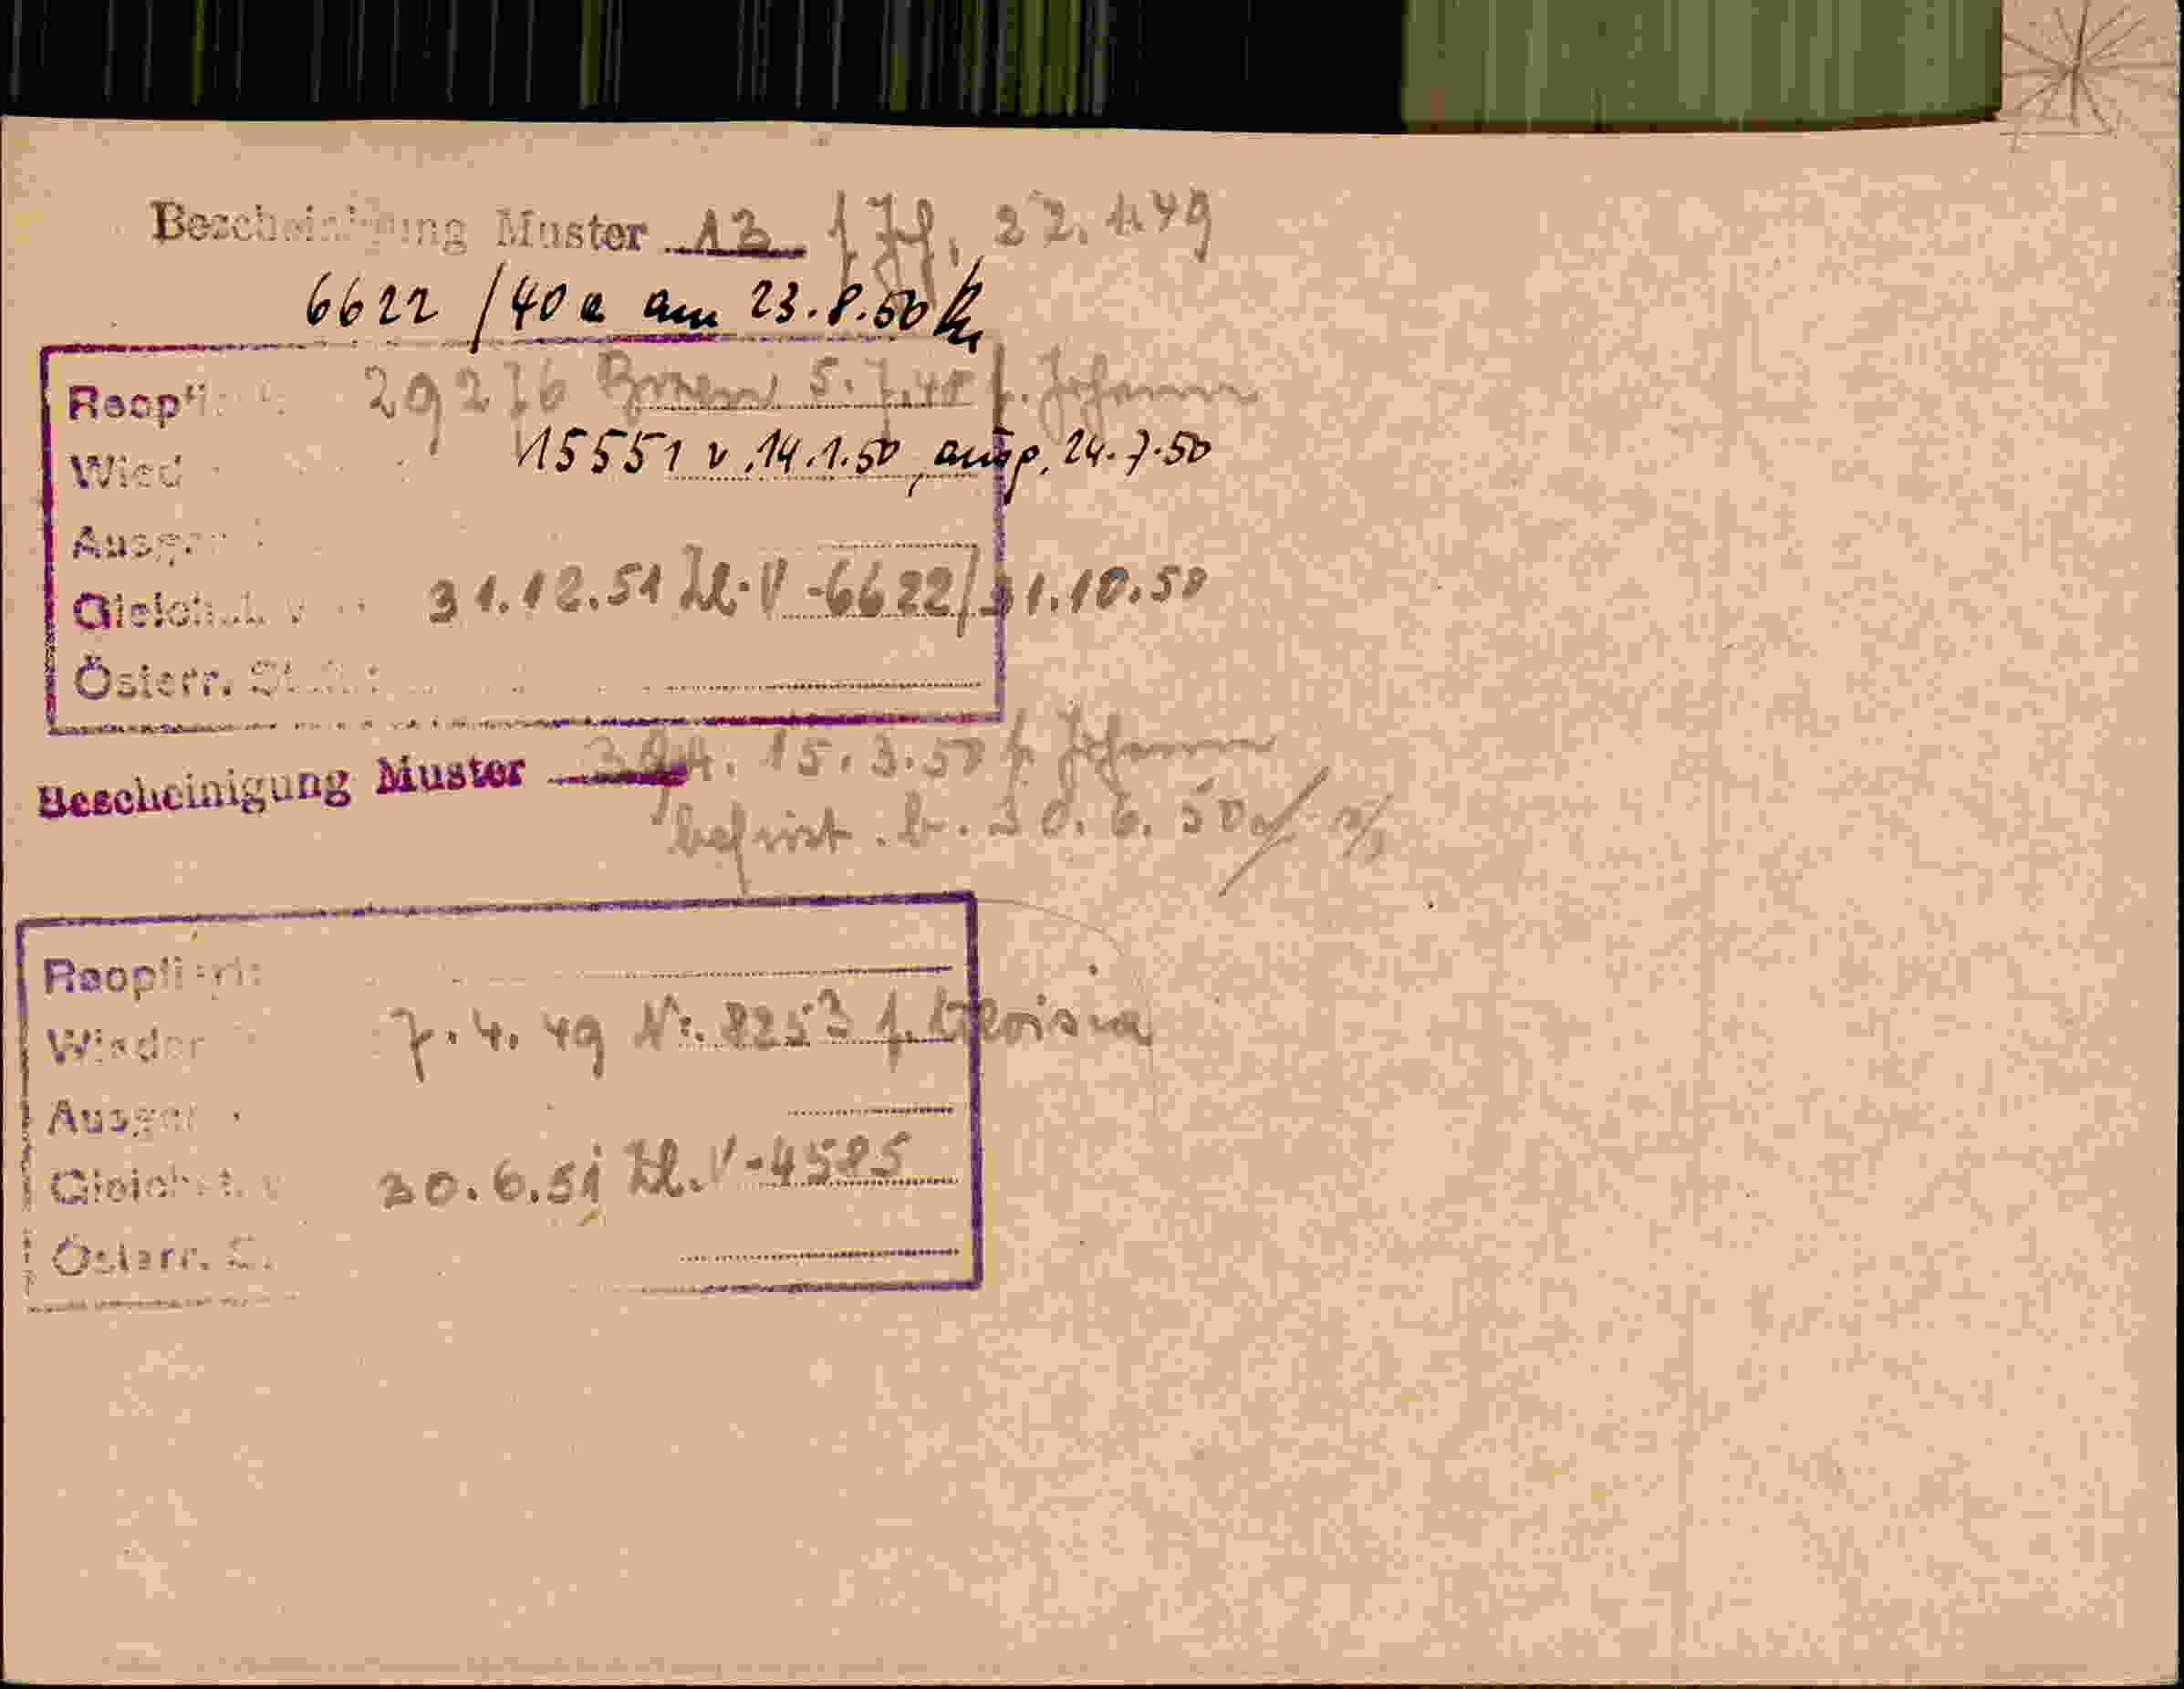 Bescheinigung Muster 13 f. 22.1.49
6622/40a am 23.8.50
Reopti 29276 Bozen 5.7.48 f. Johann
Wied 15551 v. 14.1.50, ausg. 24.7.50
Ausgew
Gleichst. 31.12.51 Zl. V-6622/31.10.50
Österr. St
Bescheinigung Muster 15.3.50 f. Johann
befrist. b. 30.6.50
Reoptiert
Wieder 7.4.49 Nr. 8253 f.
Ausge
Gleichst. 30.6.51 Zl. V-4585
Österr. S